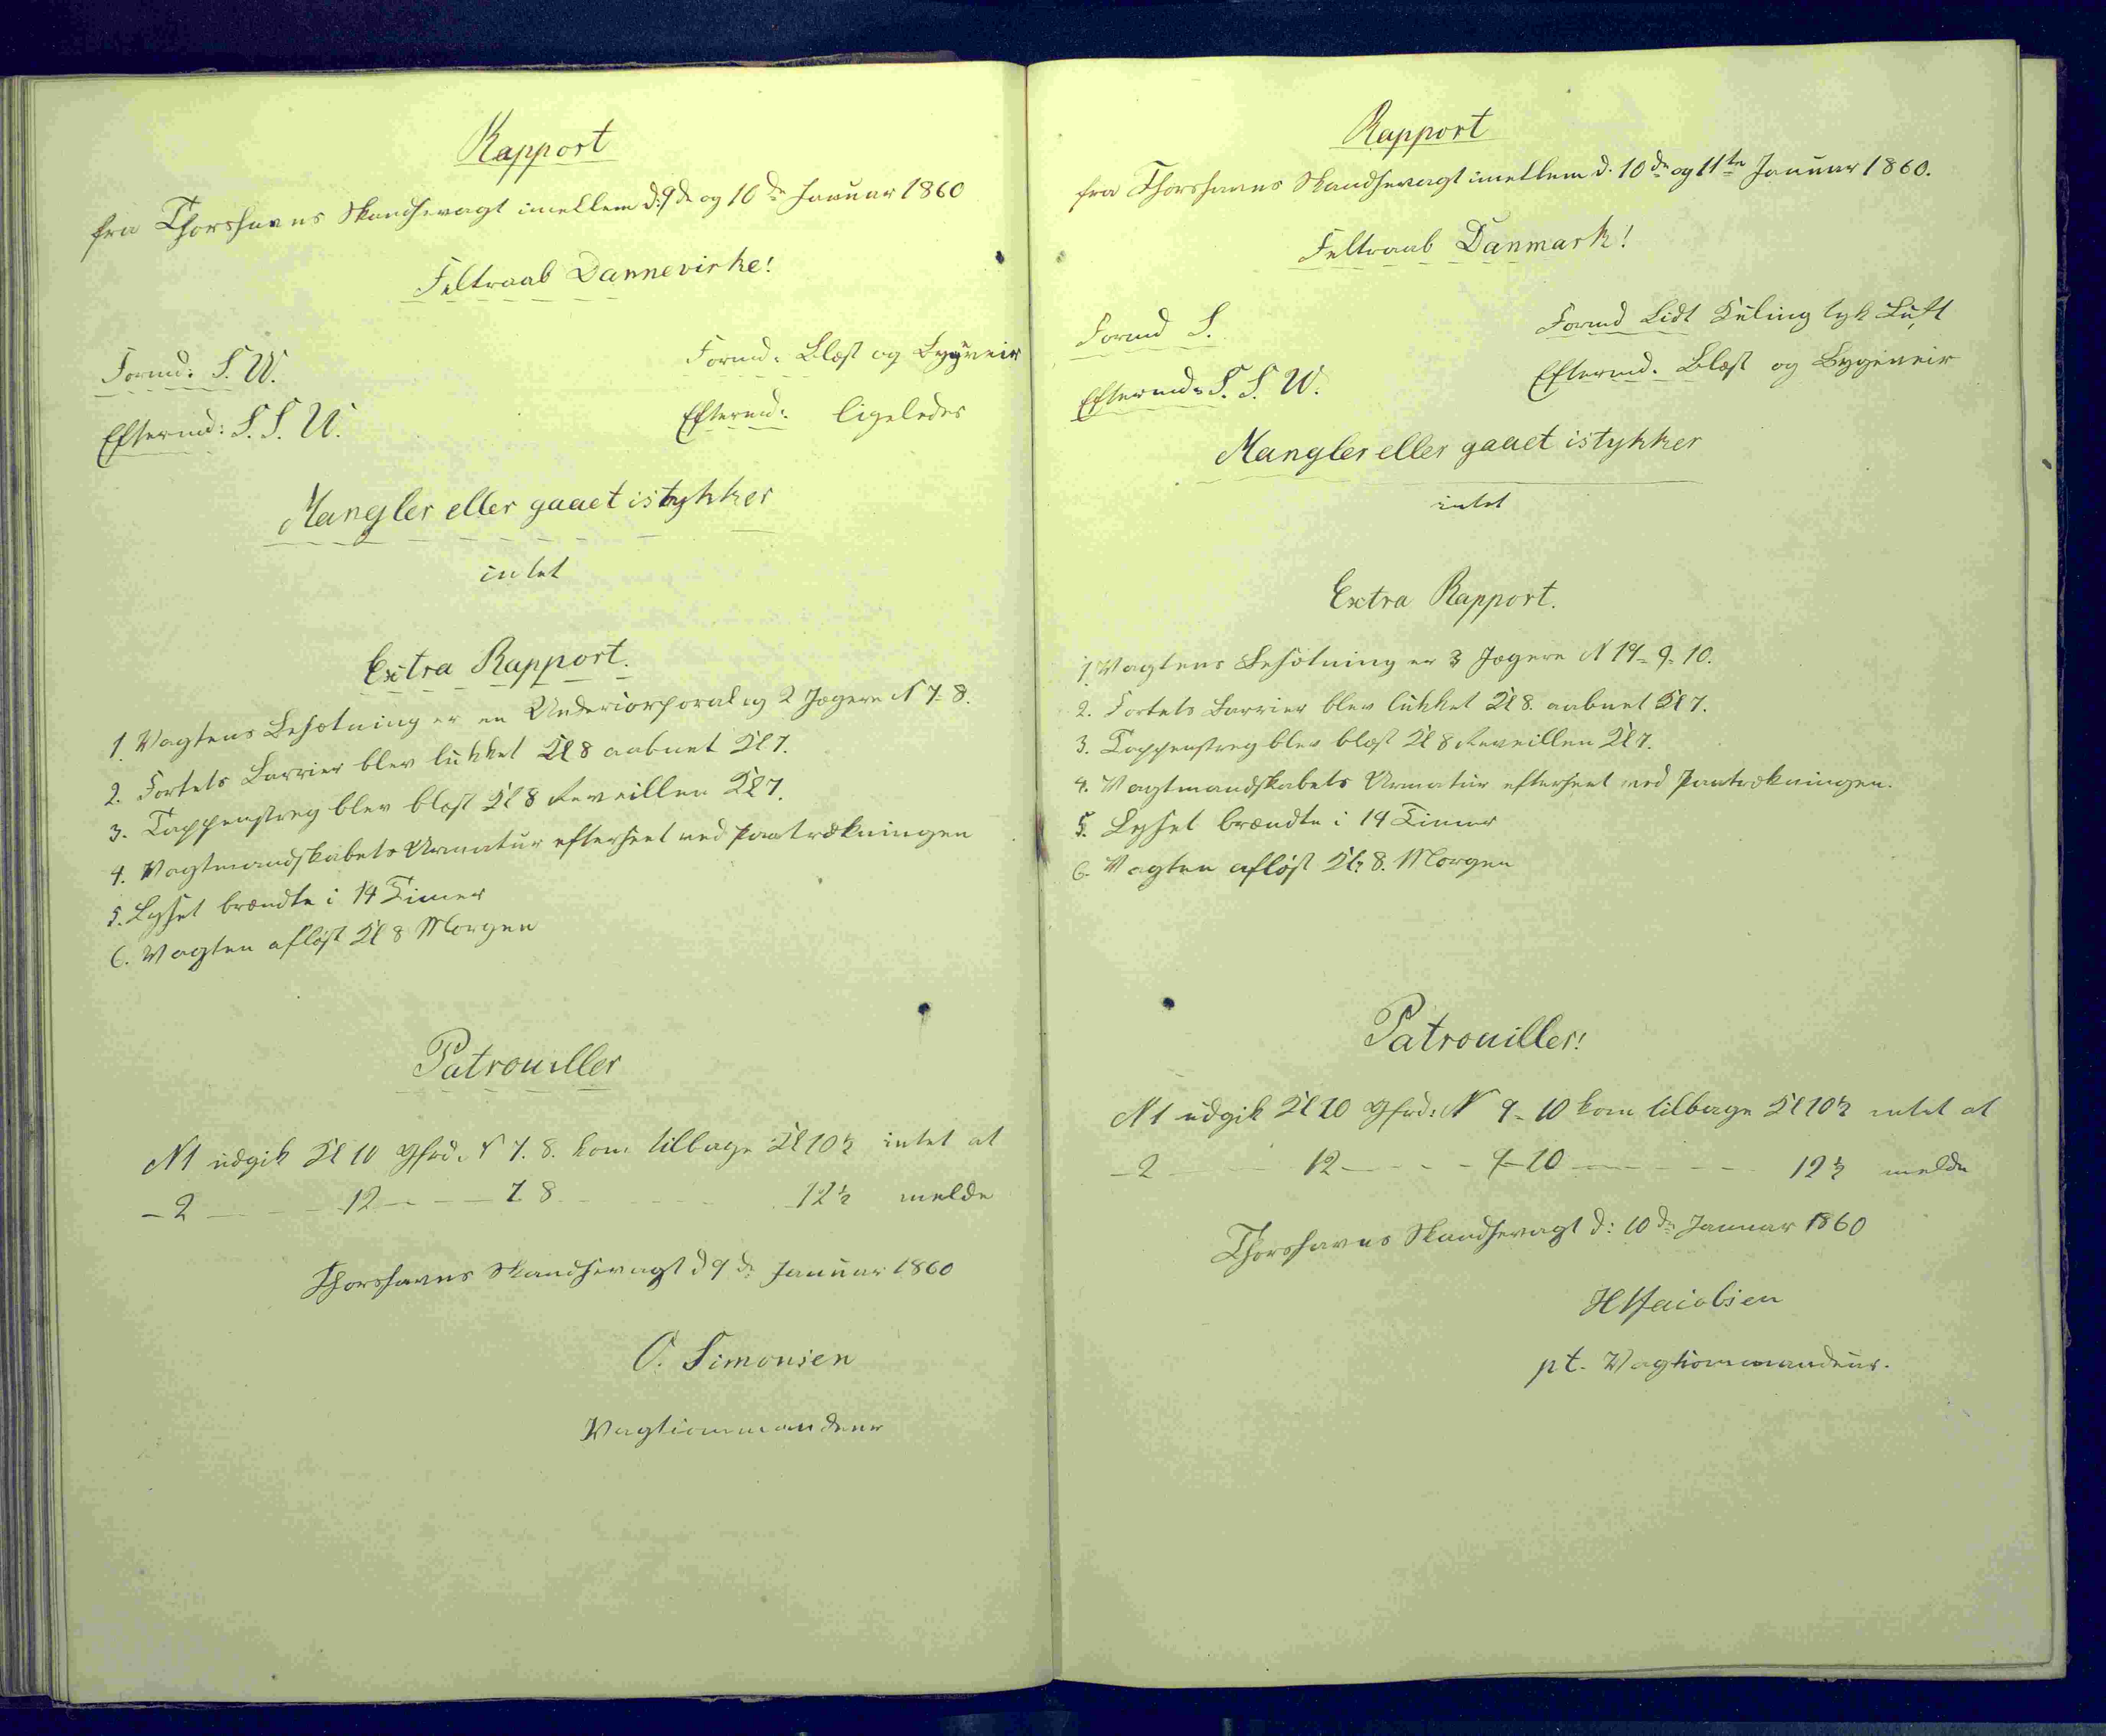 Rapport
fra Thorshavns Skandsevagt imellem d: 9de og 10de Januar 1860
Feltraab Dannevirke!
Formd: S. W.
Formd: Blæst og Bygeveir
Eftermd: S. S. W.
Eftermd: ligeledes
Mangler eller gaaet istykker
intet
Extra Rapport.
1. Vagtens Besætning er en Undercorporal og 2 Jægere N 7-8.
2. Fortets Barrier blev lukket Kl 8 aabnet Kl 7.
3. Tappenstreg blev blæst Kl 8 Reveillen Kl 7.
4. Vagtmandskabets Armatur efterseet ved Paatrækningen
5. Lyset brændte i 14 Timer
6. Vagten afløst Kl 8 Morgen
Patrouiller
N 1 udgik Kl 10 Gfrd: N 7. 8. kom tilbage Kl 10½ intet at
- 2 - - - 12 - - - 7. 8 - - - 12½ melde
Thorshavns Skandsevagt d 9de Januar 1860
O. Simonsen
Vagtcommandeur
Rapport
fra Thorshavns Skandsevagt imellem d. 10de og 11te Januar 1860.
Feltraab Danmark!
Formd S.
Formd Lidt Kuling tyk Luft
Eftermd: S. S. W.
Eftermd. Blæst og Bygeveir
Mangler eller gaaet istykker
intet
Extra Rapport.
1. Vagtens Besætning er 3 Jægere N 19- 9- 10.
2. Fortets Barrier blev lukket Kl 8. aabnet Kl 7.
3. Tappenstreg blev blæst Kl 8 Reveillen Kl 7.
4. Vagtmandskabets Armatur efterseet ved Paatrækningen.
5. Lyset brændte i 14 Timer
6. Vagten afløst Kl: 8. Morgen
Patrouiller!
N 1 udgik Kl 10 Gfrd: N 9- 10 kom tilbage Kl 10½ intet at
- 2 - - - 12 - - - 9-10 - - - 12½ melde
Thorshavns Skandsevagt d: 10de Januar 1860
Jacobsen
pt. Vagtcommandeur.